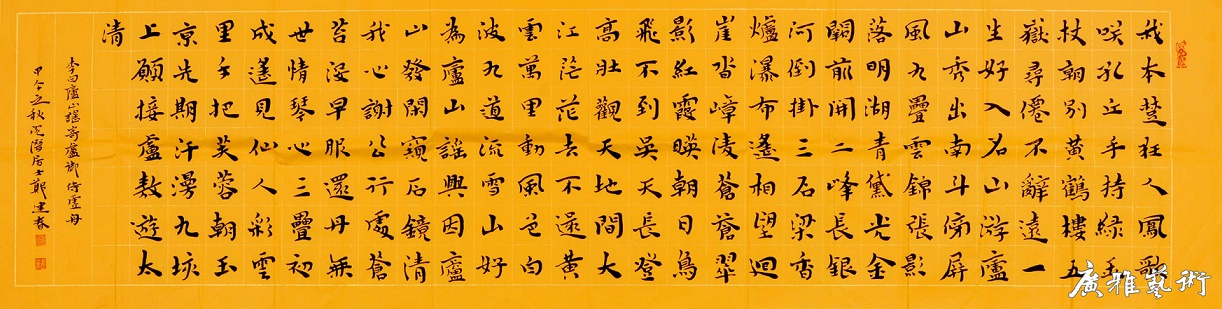 我本楚狂人鳳歌
咲孔丘手持綠玉
杖朝別黃鶴樓五
嶽尋僊不辭遠一
生好入名山游廬
山秀出南斗傍屏
風九疊雲錦張影
落明湖青黛光金
闕前開二峰長銀
河倒掛三石梁香
爐瀑布遙相望迴
崖沓嶂凌蒼蒼翠
影紅霞暎朝日鳥
飛不到吳天長登
高壯觀天地間大
江茫茫去不還黃
雲萬里動風色白
波九道流雪山好
為廬山謠興因廬
山發閑窺石鏡清
我心謝公行處蒼
苔沒早服還丹無
世情琴心三疊初
成遙見仙人彩雲
里手把芙蓉朝玉
京先期汗漫九垓
上願接盧敖遊太
清
李白廬山謠寄盧御侍虛舟
甲午立秋居士鄭建春
廣雅藝術